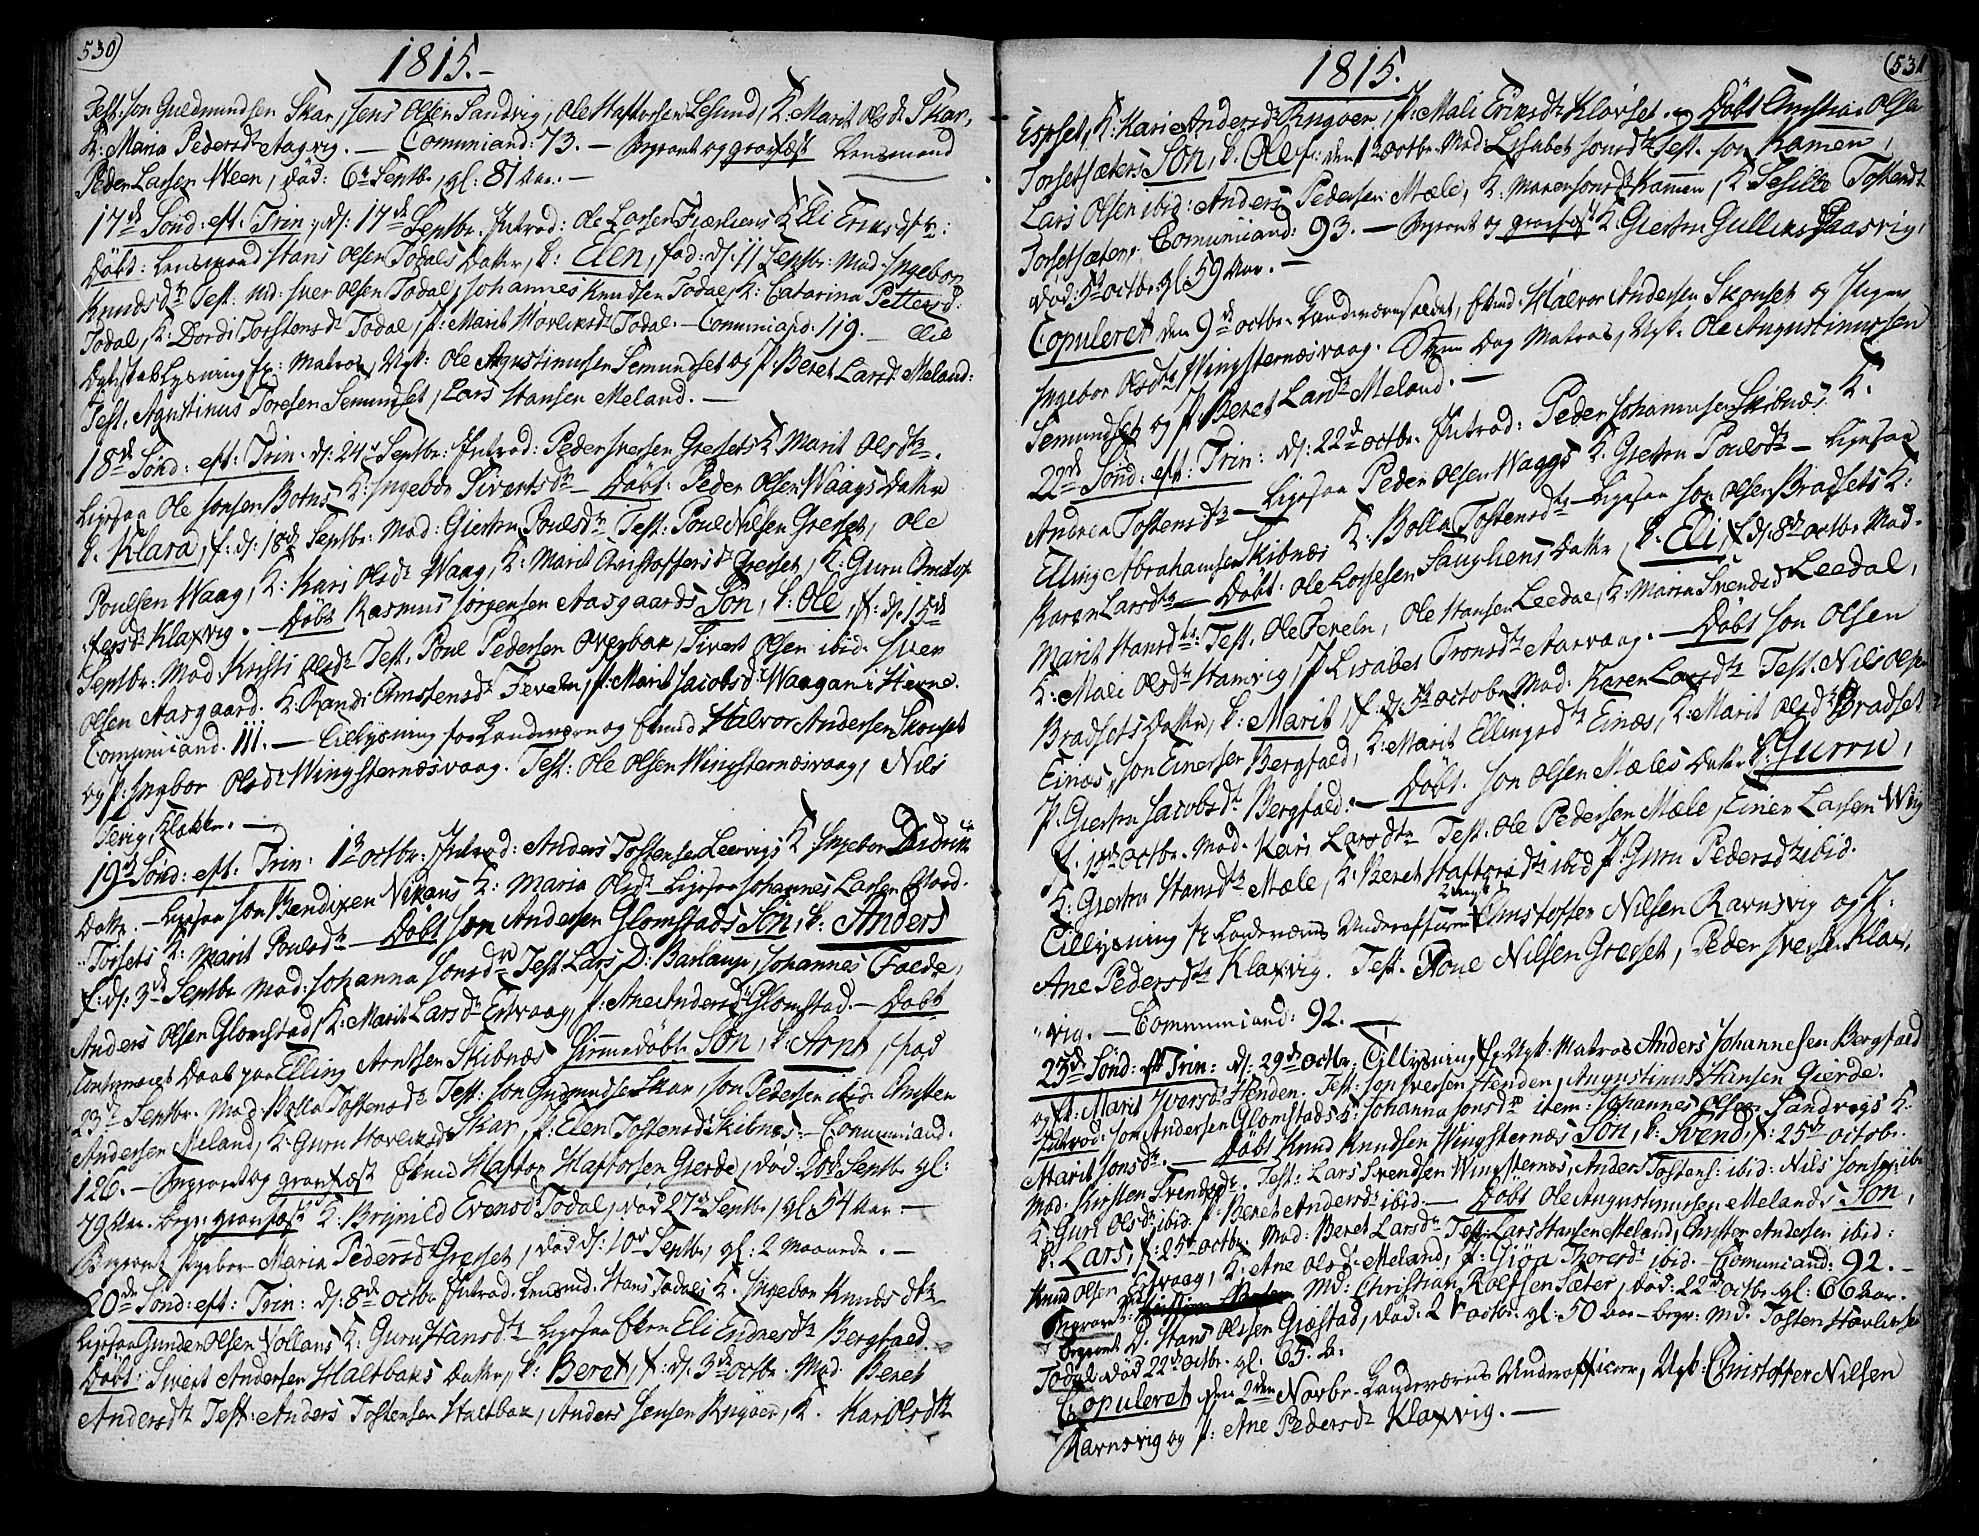 530)
1815.-
Test: Jon Guldmundsen Skar, Jens Olsen Sandvig, Ole Haftorsen Lesund, K: Marit Olsd. Skar,
K: Maria Pedersdr Aagvig. — Comuniand: 73. — Begravet og gravfæst Lensmand
Peder Larsen Ween, død: 6te Septbr, gl: 81 Aar. —
17de Sønd: eft: Trin: d: 17de Septbr. Introd: Ole Larsen K Eli Eriksdtr:
Døbt: Lensmand Hans Olsen Todals Datter, k: Elen, fød: d: 11 Septbr: Mod: Ingebor
Knudsdr Test: Md: Iver Olsen Todal, Johannes Knudsen Todal, K: Catarina Pettersd:
Todal, K: Dordi Torstensdr Todal, P: Marit Havleksdr Todal. — Comuniand. 119. —
Lysning fr: Matros, Ugk: Ole Agustinussen Semundset og P: Beret Larsd. Meland:
Test. Agustinus Toresen Semundset, Lars Hansen Meland. —
18de Sønd: eft: Trin. d: 24de Septbr: Introd: Peder Iversen Gresets K Marit Olsdtr.
Ligesaa Ole Jonsen Botns K: Ingebor Sivertsdtr — Døbt. Peder Olsen Waags Datter
k. Klara, f: d: 18de Septbr: Mod: Giertru Poulsdtr Test: Poul Nilsen Greset, Ole
Poulsen Waag, K: Kari Olsdr Waag, K: Marit Christoffersd Greset, K: Guru Christof-
fersdr Klaxvig. — Døbt Rasmus Jørgensen Aasgaards Søn, k: Ole, f: d: 15de
Septbr: Mod: Kristi Olsdr Test. Poul Pedersen Ovegbak, Sivert Olsen ibid. Iver
Olsen Aasgaard. K: Randi Christensdr Fevelm, P: Marit Jacobsd: Waagan i Herne.
Comuniand. 111. — Tillysning for Landværn og Ekmd Halvor Andersen Skonset
og P: Ingbor Olsdr Wingsternæsvaag. Test: Ole Olsen Wingsternæsvaag, Nils
Tevig, Klokker. —
19de Sønd: eft: Trin: 1te Octbr: Introd: Anders Tostensen Leervigs K Ingebor Didrik
Datter. — Ligesaa Jon Bendixen Nixaus K: Maria Olsdr Ligesaa Johannes Larsen
Torsets K: Marit Poulsdr — Døbt Jon Andersen Glomstads Søn, k: Anders
f: d: 3de Septbr Mod: Johanna Jonsdr Test Lars D: Barlaup, Johannes Foede,
Anders Olsen Glomstad, K: Marit Larsdr Ertvaag, P: Ane Andersdr Glomstad. — Døbt
Daab paa Elling Arntsen Skibnæs Hjemmedøbte Søn, k: Arnt, fød
23de Septbr. Mod: Bolla Tostensdr Test: Jon Gudmundsen Skar, Jon Pedersen ibid. Christen
Andersen Meland, K: Guru Havleksdr Skar, P: Elen Tostensdr Skibnæs. — Comuniand.
126. — Begravet og gravfæst Ekmd Haftor Haftorsen Gierde, død 20de Septbr gl:
79 Aar. Begr: gravfæst K: Brynild Evensd Todal, død 27de Septbr, gl. 54 Aar. —
Begravet Ingebor Maria Pedersdr Greset, død d: 10de Septbr, gl: 2 Maaneder. —
20de Sønd: eft: Trin: d: 8de Octbr Introd. Lensmd. Hans Todals K. Ingebor Knudsdtr
Ligesaa Gunder Olsen Vollans K: Guru Hansdtr Ligesaa Eli Endresdr Bergfald.
Døbt: Sivert Andersen Haltbaks Datter, k: Beret, f: d: 3de Octbr. Mod: Beret
Andersdr Test: Anders Tostensen Haltbak, Anders Jensen Ringøen, K. Kari Olsdtr
(531
1815.
Espset, K: Kari Andersdr Ringøen, P: Mali Eriksdr Klovset. og Døbt Christian Olsen
Torsetsæters Søn, k: Ole f: den 1te Octbr. Mod: Lisabet Jonsdr Test. Jon Kamen,
Lars Olsen ibid: Anders Pedersen Mæle, K. Maren Jonsdr Kamen, K Sesille Tostensdr
Torsetsæter, Comuniand: 93. — Begravet og gravfæst K Giertru Gulliksd Saasvig,
død: 5te Octbr. gl 59 Aar. —
Copuleret den 9de Octbr. Landværnsoldat, Ekmd: Halvor Andersen Skonset og Pigen
Ingebor Olsdtr Wingsternæsvaag. Samme Dag Matros, Ugk: Ole Augustinussen
Semundset og P: Beret Larsdr Meland. —
22de Sønd: eft: Trin: d: 22de Octbr. Introd: Peder Johannesen Skibnæs K.
Andrea Tostensdtr — Ligesaa Peder Olsen Waags K. Giertru Poulsdtr — Ligesaa
Elling Abrahamsen Skibnæs K. Bolla Tostensdtr — Ligesaa Jon Olsen Bradsets K:
Karen Larsdtr — Døbt: Ole Lossesen Sauglins Datter, k: Eli, f: d: 8de Octbr Mod.
Marit Hansdtr: Test. Ole Feveln, Ole Hansen Leedal, K: Maria Svendsd Leedal,
K: Mali Olsdtr Hamvig, P Lisabet Tronsdtr Aarvaag. — Døbt Jon Olsen
Bradsets Datter, k: Marit, f: d: 5te October Mod: Karen Larsdtr Test: Nils Olsen
Einæs, Jon Einersen Bergfald, K: Marit Ellingsdtr Einæs, K: Marit Olsdr Bradset
P: Giertru Jacobsdtr Bergfald. — Døbt. Jon Olsen Mæles Datter k: Gurru,
f. 13de Octbr. Mod: Kari Larsdtr Test. Ole Pedersen Mæle, Einer Larsen Wiig
K: Giertru Hansdtr Mæle, K: Beret Haftorsdtr ibid P: Guru Pedersdtr ibid.
Tillysning fr Landeværns Underofficer Ungk Christoffer Nilsen Ravnsvig og P:
Ane Pedersdtr Klaxvig. Test: Poul Nilsen Greset, Peder Iversen Klax-
vig. — Communiand: 92. —
23de Sønd: eft Trin: d: 29de Octbr. Tillysning fr Ugk: Matros Anders Johannesen Bergfald
og P: Marit Iversdr Henden. Test: Jon Iversen Henden, Augustinus Hansen Gierde.
Introd: Jon Andersen Glomstads K: Johanna Jonsdr item: Johannes Olsen Sandvigs K:
Marit Jonsdr. — Døbt Knud Knudsen Wingsternæs Søn, k: Svend, f: 25de Octobr.
Mod: Kirsten Svendsdr. Test: Lars Svendsen Wingsternæs, Anders Tostens: ibid: Nils Jonsen ibid
K: Guri Olsdr ibid. P: Beret Andersdr ibid: — Døbt Ole Augustinussen Melands Søn,
k: Lars, f: 25de Octbr. Mod: Beret Larsdr Test: Lars Hansen Meland, Christen Andersen ibid:
Knud Olsen Ertvaag, K: Ane Olsdr Meland, P: Giøa Toresdr ibid. — Comuniand: 92. —
Begravet Md: Christian Rolfsen Sæter, død: 22de Octbr gl: 66 Aar.
Begravet D: Hans Olssen Giæstad, død: 21 Octbr: gl: 50 Aar — begr: Md. Tosten Havlersen
Todal, død 22de Octbr. gl: 65. A.
Copuleret den 2den Novbr. Landeværns Underofficer, Ugk: Christoffer Nilsen
Ravnsvig og P: Ane Pedersdr Klaxvig. —